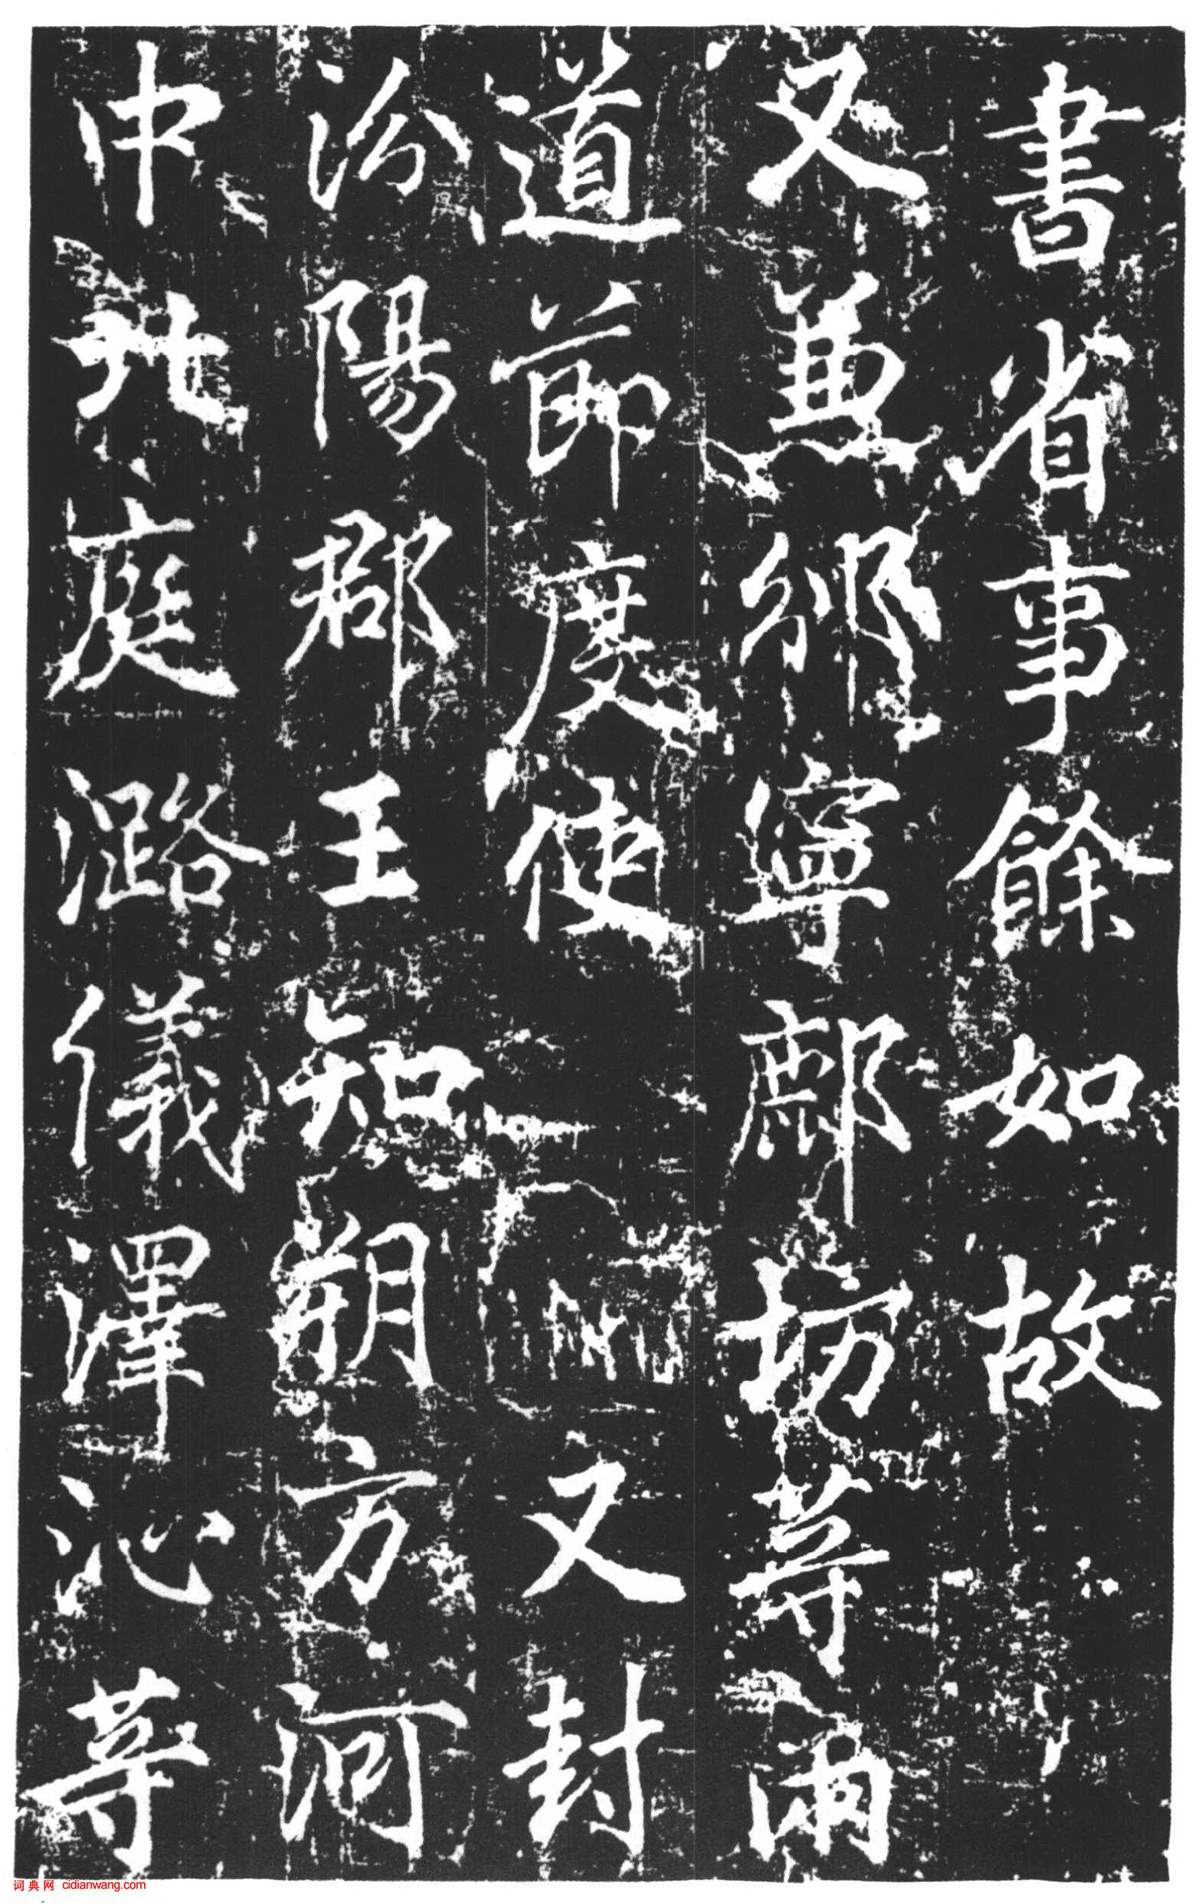 書省事餘如故
又兼邠寧鄜坊等兩
道節度使 又封
汾陽郡王知朔方河
中北庭潞儀澤沁等
词典网 cidianwang.com